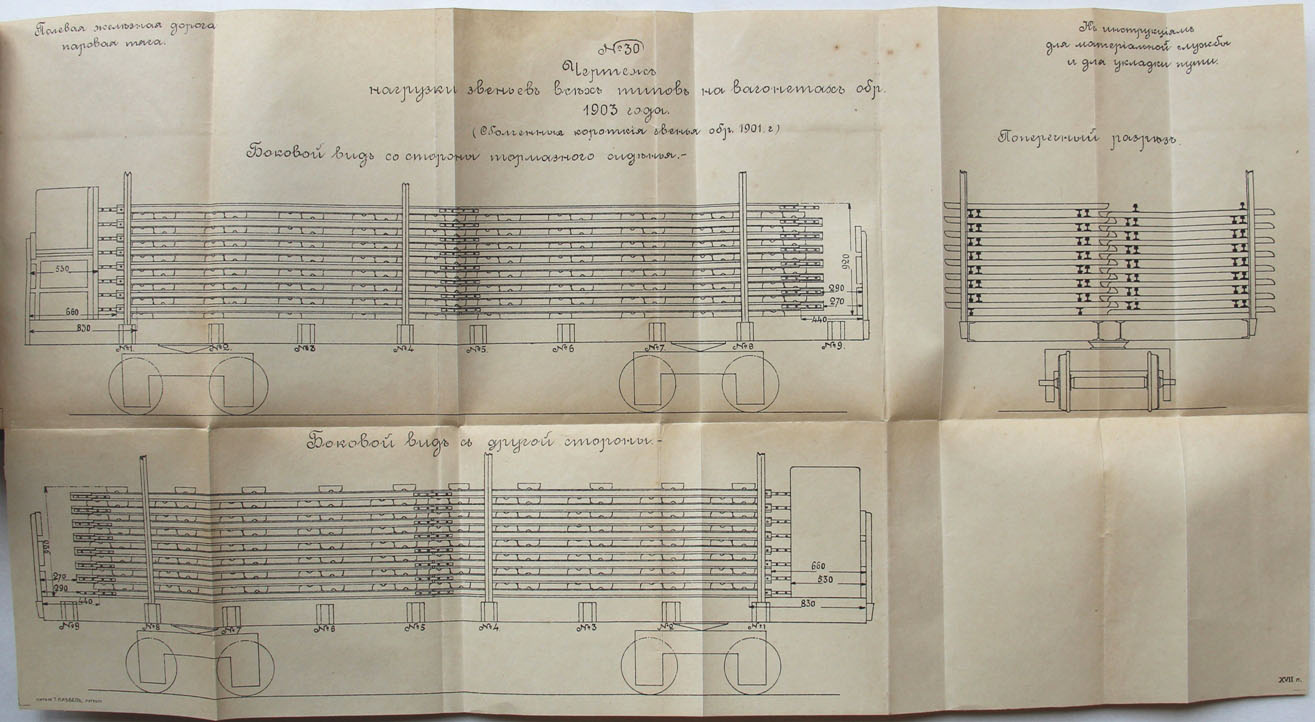 Полевая желѣзная дорога
паровая тяга.
Къ инструкціямъ
для матеріальной службы
и для укладки пути.
№ 30
Чертежъ
нагрузки звеньевъ всѣхъ типовъ на вагонетахъ обр.
1903 года.
короткія звенья обр. 1901. г.)
Боковой видъ со стороны тормазного сидѣнья.-
Поперечный разрѣзъ.
550
660
830
920
290
270
440
№1. №2. №3 №4 №5. №6 №7. №8 №9.
Боковой видъ съ другой стороны.-
920
270
290
440
660
530
830
№9 №8 №7 №6 №5 №4 №3 №2 №1
XVII п.